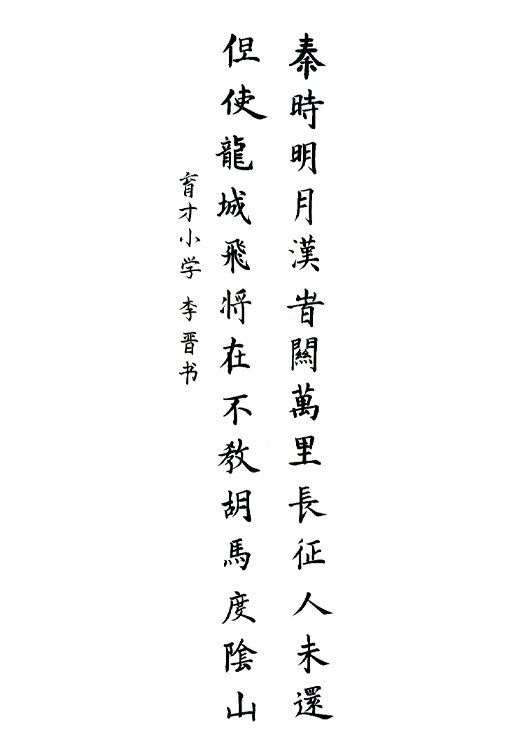 秦時明月漢旹關萬里長征人未還
但使龍城飛将在不教胡馬度陰山
育才小学 李晋书